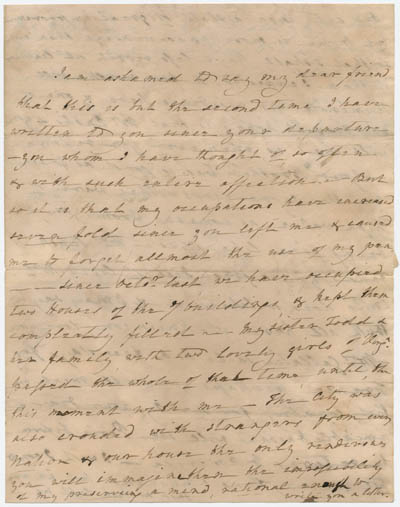 I am ashamed to say my dear friend
that this is but the second time I have
written to you since your departure
- you whom I have thought of so often
& with such entire affection - But
so it is that my occupations have increased
seven fold since you left me & caused
me to forget allmost the use of my pen
- since Octor. last we have occupied
two Houses of the 7 buildings & kept them
compleatly filled - My sister Todd &
her family with two lovely girls of
passed the whole of that time until the
this moment with me - The City was
also crouded with strangers from every
Nation & our house the only rendevous
you will immagine then the impossibility
of my preserving a mind, rational enough to
write you a letter.